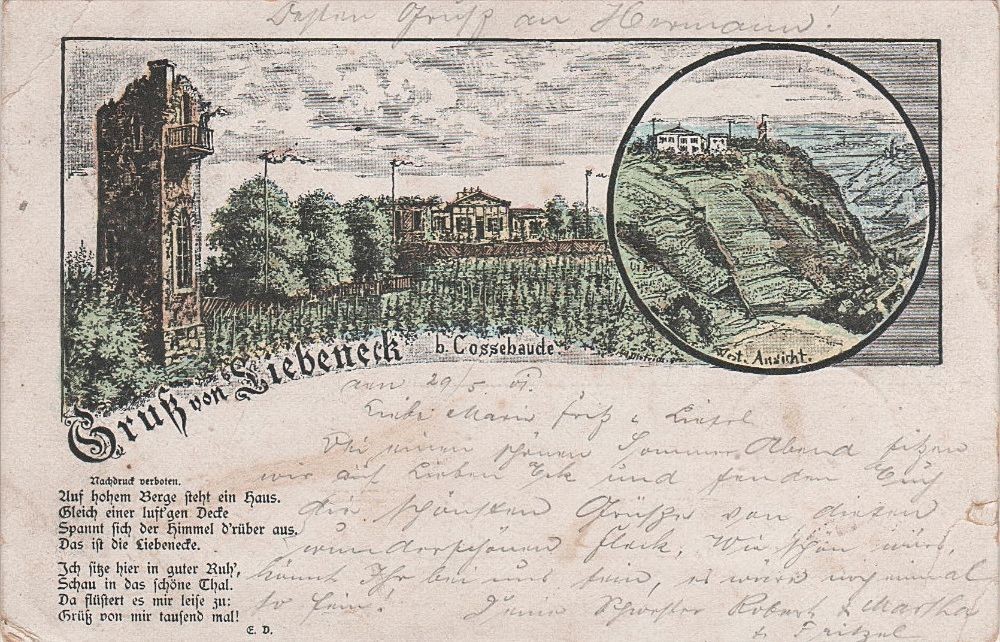 Besten Gruß an Hermann!
Tot. Ansicht.
Gruß von Liebeneck b. Cossebaude.
den 29/5 01.
Liebe Marie Fritz & Liesel
Bei einen schönen Sommer Abend sitzen
wir auf Lieben Eck und senden Euch
die schönsten Grüße von diesen
wunderschönen Fleck, Wie schön wärs,
könnt Ihr bei uns sein, es wäre noch einmal
so fein! Deine Schwester Robert & Martha
& Fritzel
Nachdruck verboten.
Auf hohem Berge steht ein Haus.
Gleich einer luft'gen Decke
Spannt sich der Himmel d'rüber aus,
Das ist die Liebenecke.
Ich sitze hier in guter Ruh',
Schau in das schöne Thal.
Da flüstert es mir leise zu:
Grüß von mir tausend mal!
E. D.